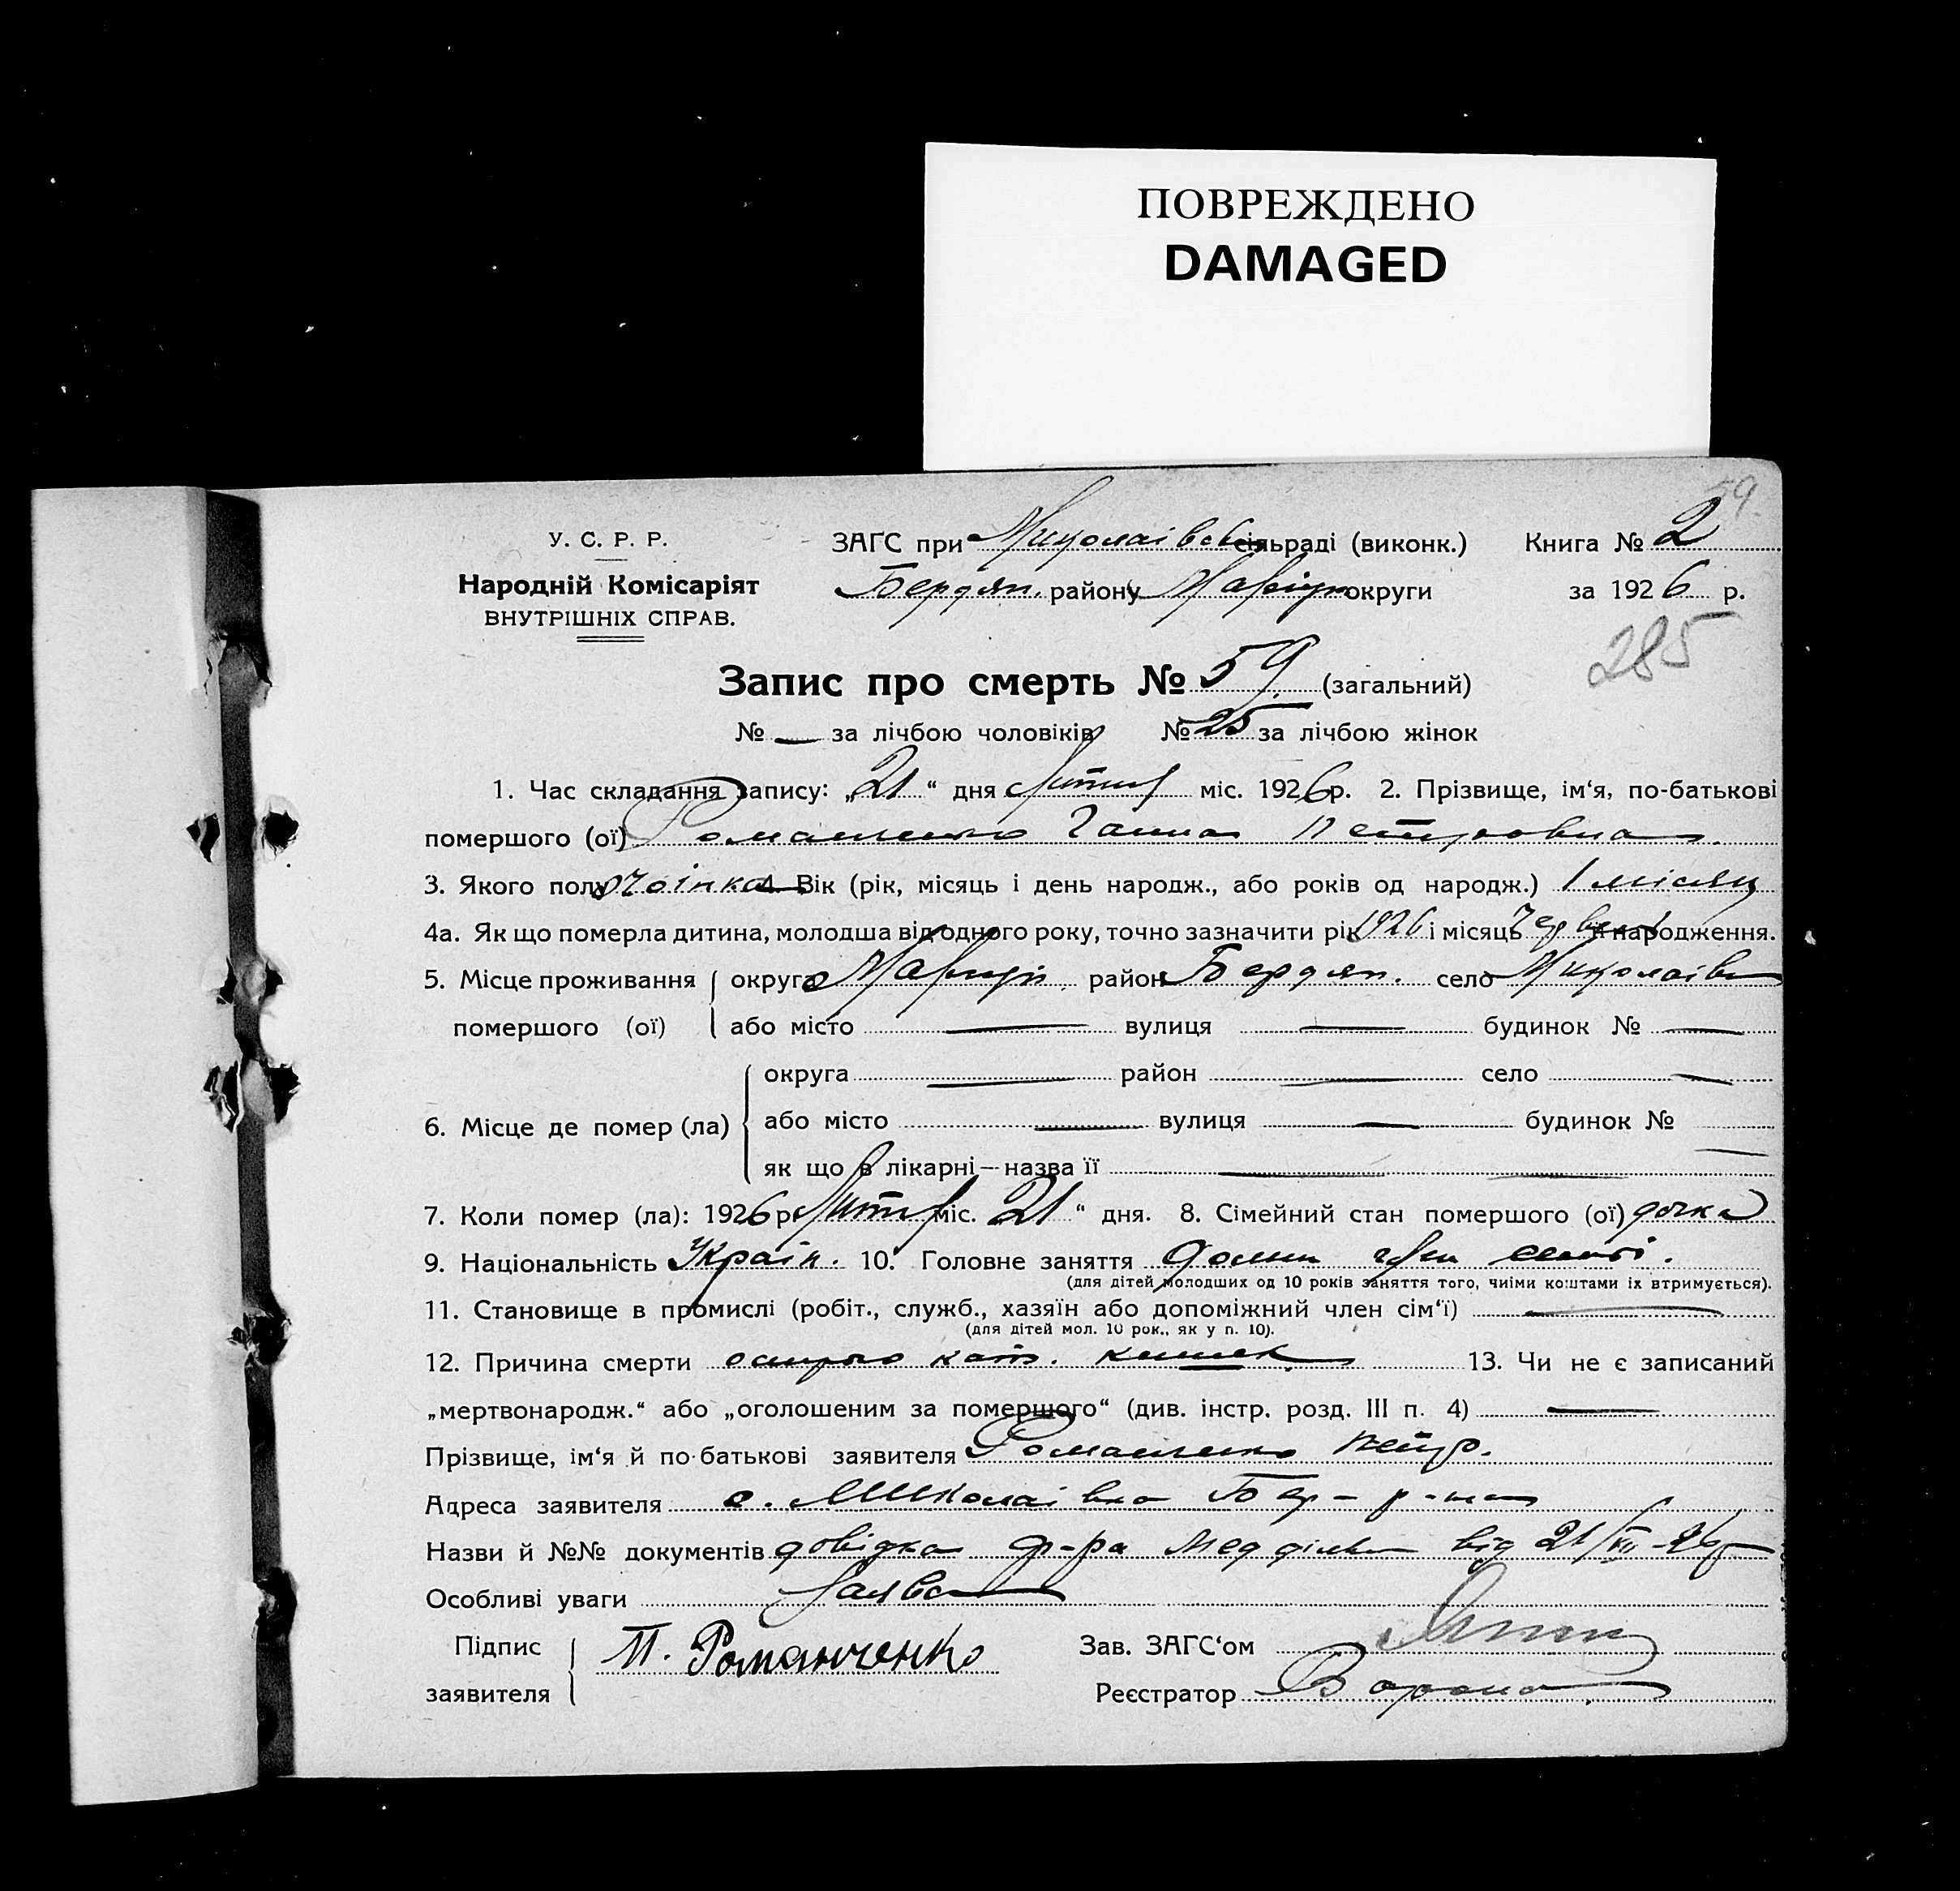 ПОВРЕЖДЕНО
DAMAGED
59
У. С. Р. Р.
Народній Комісаріят
ВНУТРІШНІХ СПРАВ.
ЗАГС при Миколаівській сільраді (виконк.) Книга № 2
Бердян. району Маріуп округи за 1926 р.
285
Запис про смерть № 59 (загальний)
№ — за лічбою чоловіків № 25 за лічбою жінок
1. Час складання запису: „21“ дня Липня міс. 1926 р. 2. Прізвище, ім‘я, по-батькові
помершого (ої) Романченко Ганна Петровна
3. Якого полу жінка 4. Вік (рік, місяць і день народж., або років од народж.) 1 місяц
4а. Як що померла дитина, молодша від одного року, точно зазначити рік 1926 і місяць Червень народження.
5. Місце проживання округа Маріуп. район Бердян. село Миколаівка
помершого (ої) або місто — вулиця — будинок № —
округа — район — село —
6. Місце де помер (ла) або місто — вулиця — будинок № —
як що в лікарні — назва її —
7. Коли помер (ла): 1926 р. Липня міс. 21“ дня. 8. Сімейний стан помершого (ої) дочка
9. Національність Украін. 10. Головне заняття
(для дітей молодших од 10 років заняття того, чиіми коштами іх втримується).
11. Становище в промислі (робіт., служб., хазяїн або допоміжний член сім‘ї) —
(для дітей мол. 10 рок., як у п. 10).
12. Причина смерти кат. кишек 13. Чи не є записаний
„мертвонародж.“ або „оголошеним за помершого“ (див. інстр. розд. III п. 4) —
Прізвище, ім‘я й по-батькові заявителя Романченко Петр.
Адреса заявителя с. Миколаівка Бер- р-на
Назви й №№ документів довідка від 21/VII-26р
Особливі уваги Заява
Підпис
заявителя П. Романченко
Зав. ЗАГС‘ом
Реєстратор Ворона